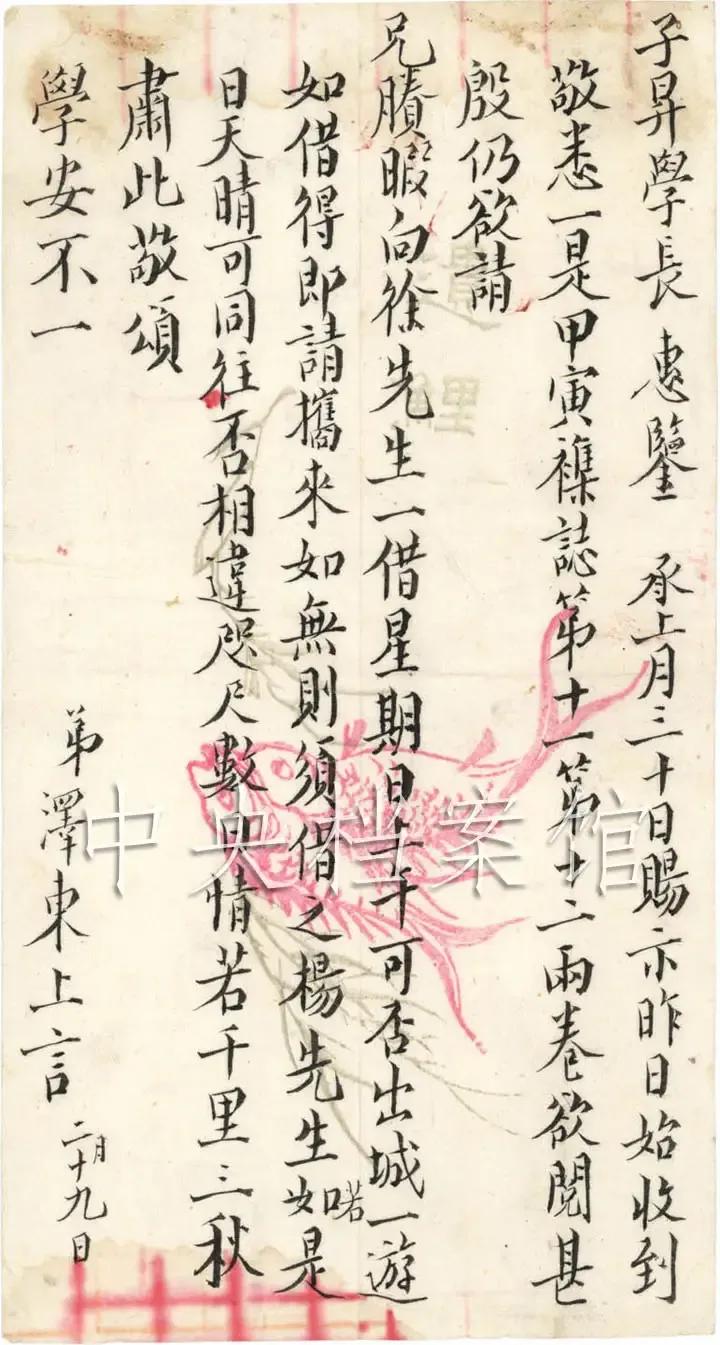 子昇學長 惠鑒 承上月三十日賜示昨日始收到
敬悉一是甲寅襍誌第十一第十二兩卷欲閱甚
殷仍欲請
兄賸暇向徐先生一借星期日上午可否出城一遊
如借得即請攜來如無則須借之楊先生如喏是
日天晴可同往否相違咫尺數日情若千里三秋
肅此敬頌
學安不一
弟澤東上言
二月十九日
中央档案馆